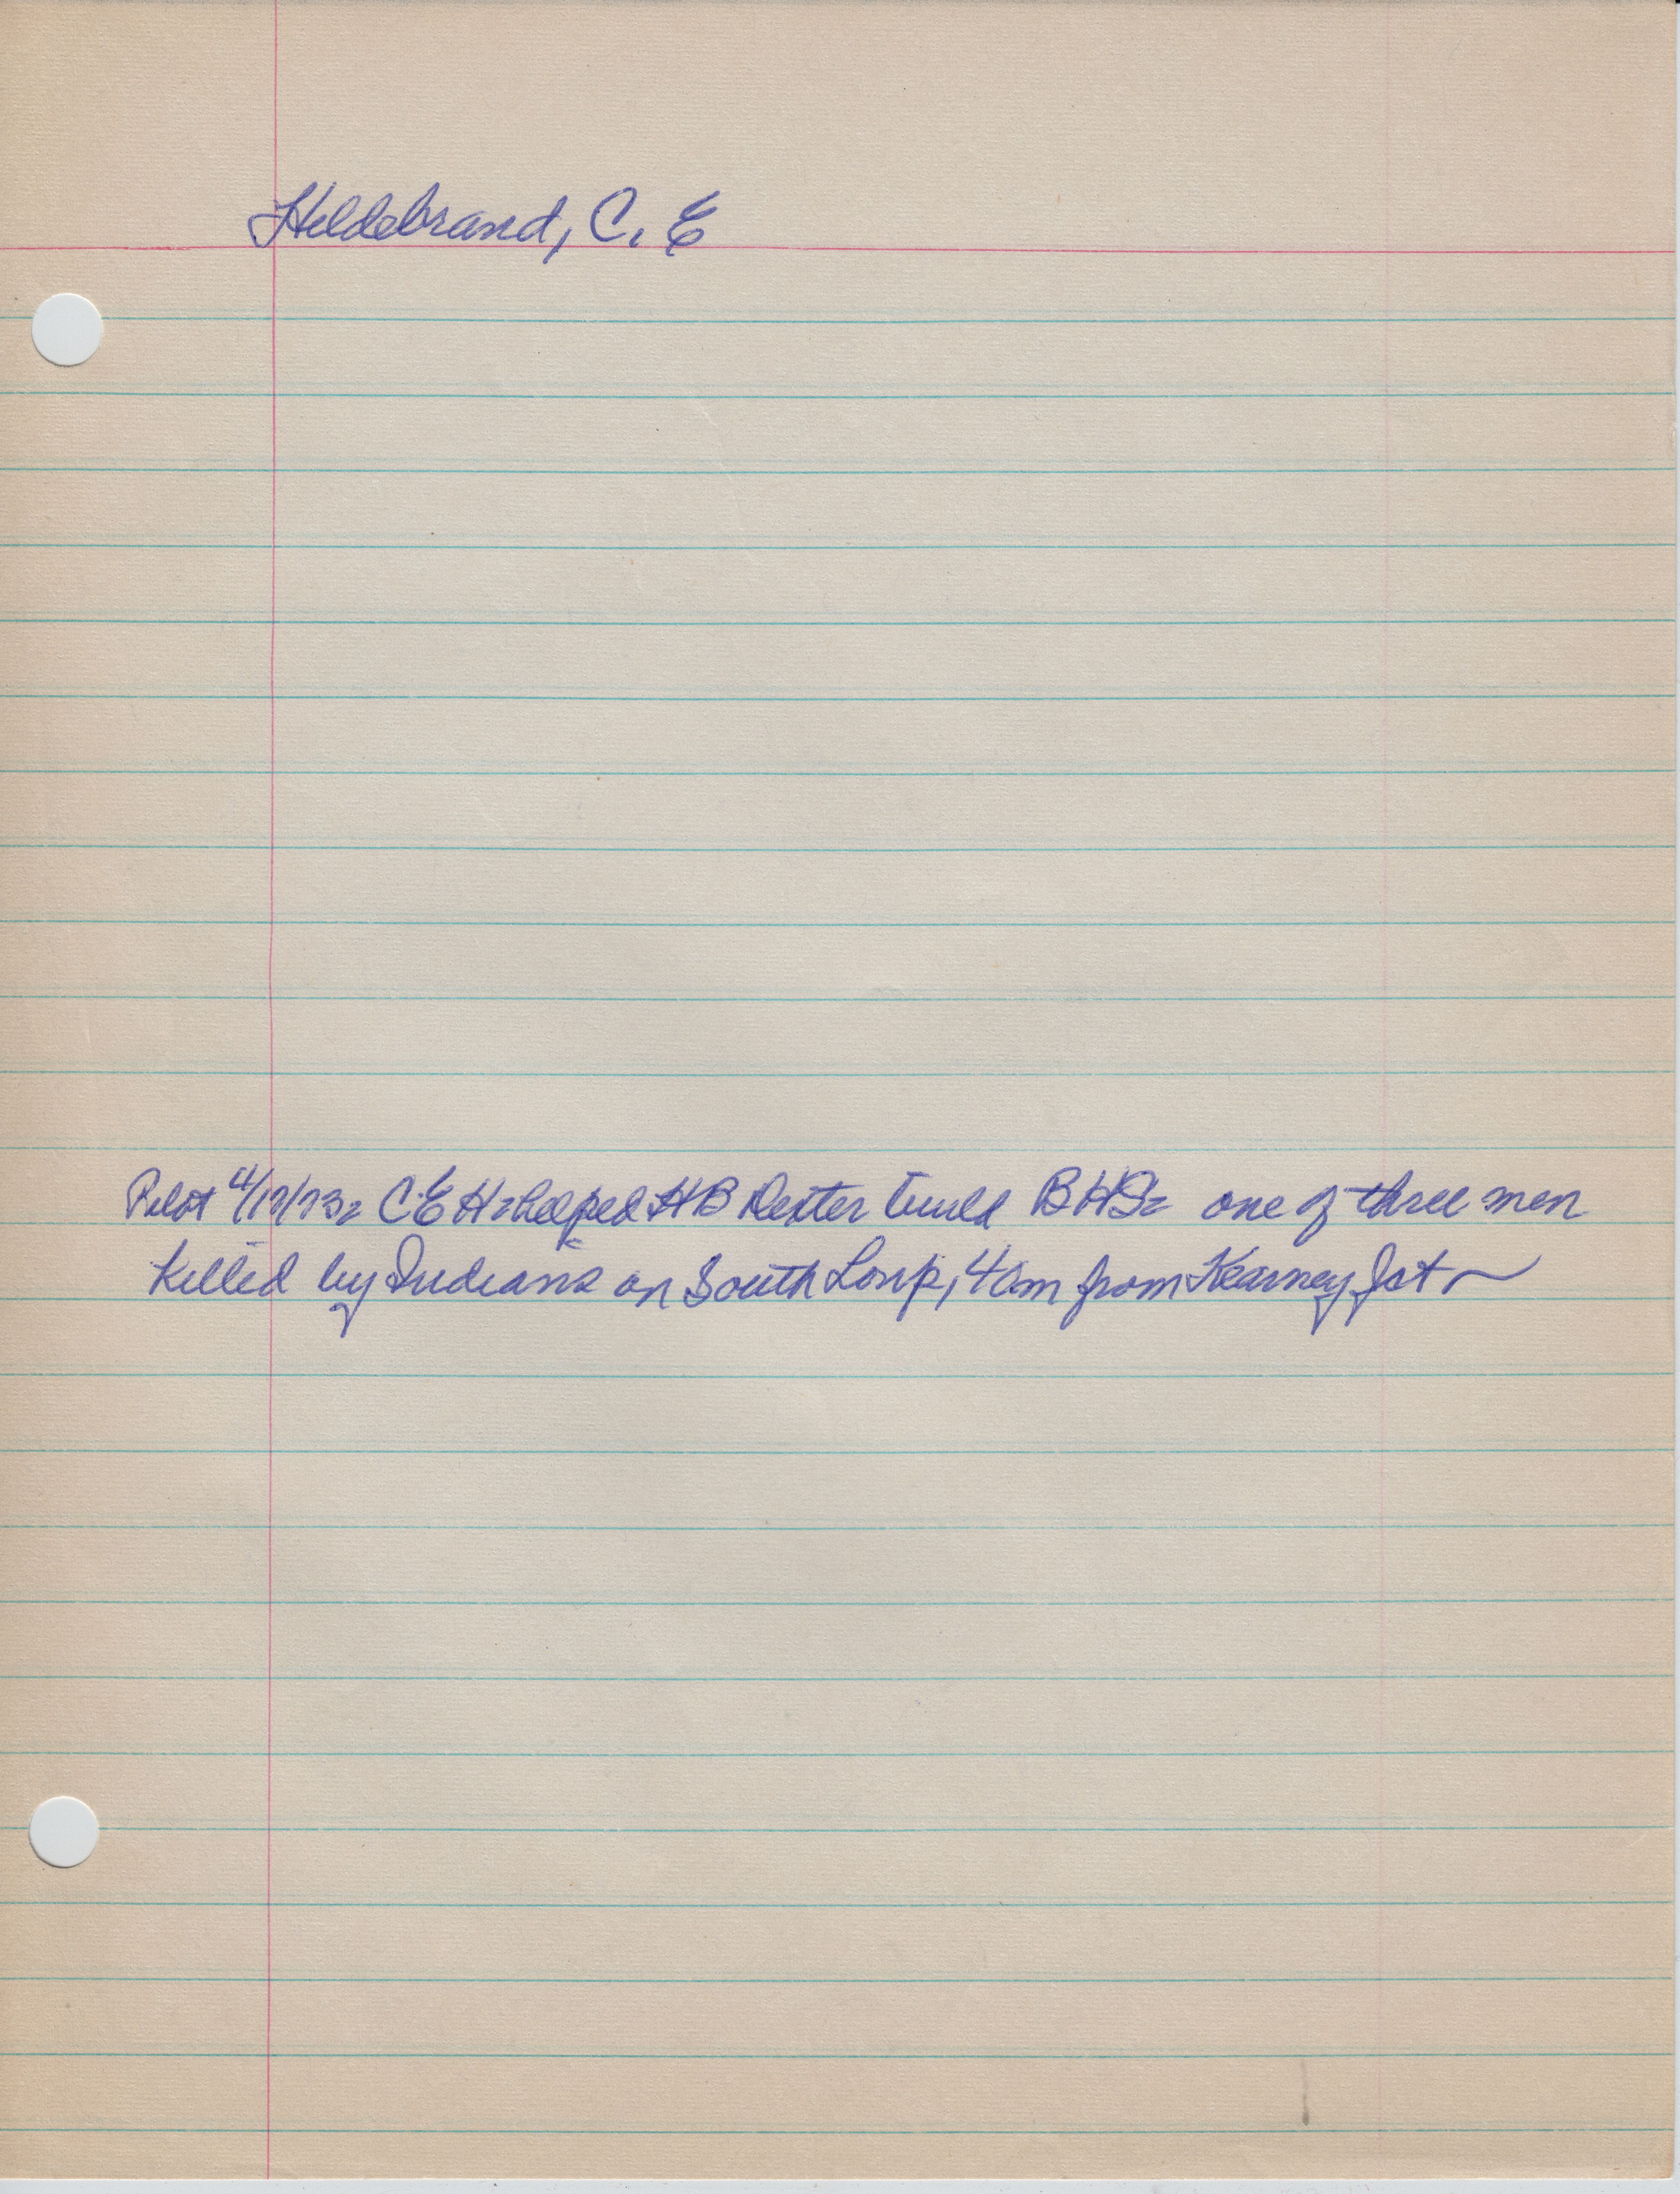 Hildebrand, C. E
Pilot 4/19/73= C.E H= helped HB Dexter build BHS= one of three men
killed by Indians on South Loup, 40m from Kearney Jct ~